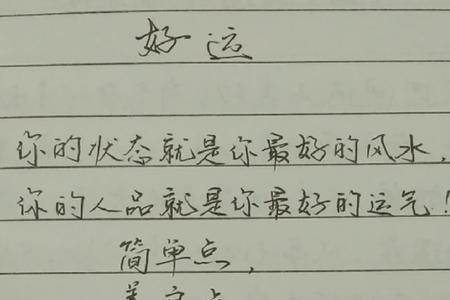 好运
你的状态就是你最好的风水,
你的人品就是你最好的运气!
简单点,